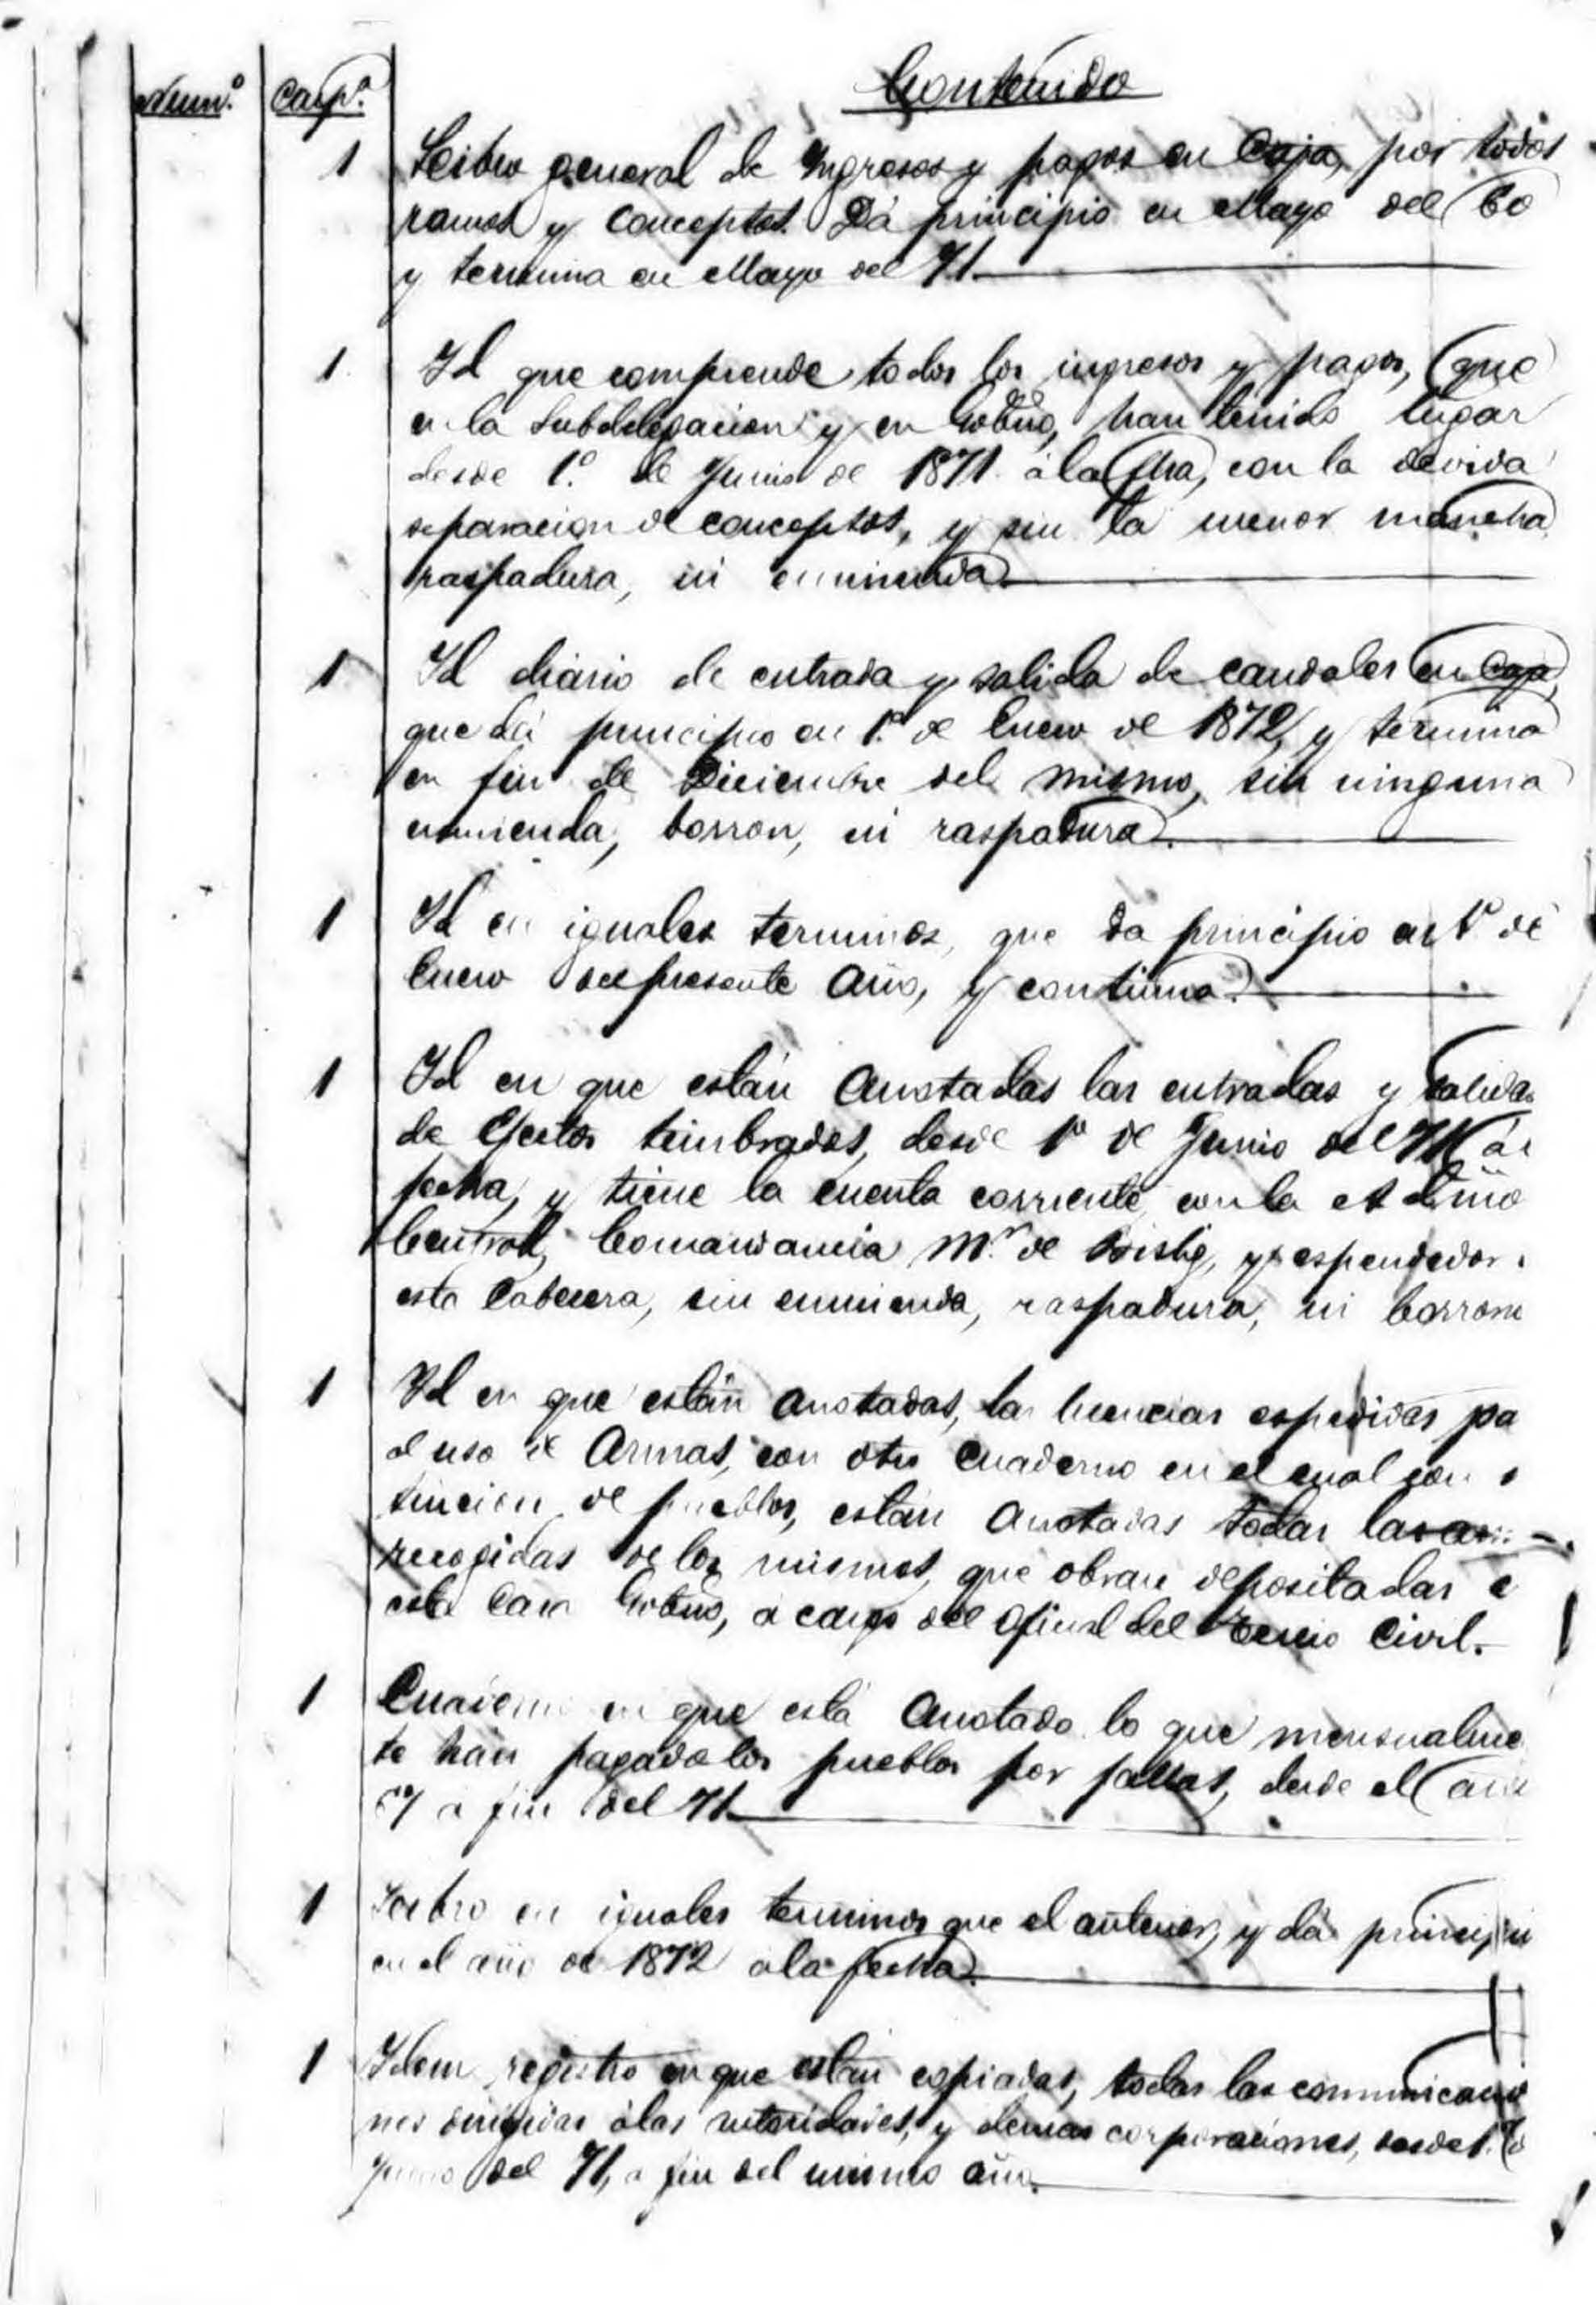 Num.º Carp.ª Contenido
1 Libro general de Yngresos y pagos en Caja, por todos
ramos y conceptos. Dá principio en Mayo del 60
y termina en Mayo del 71.
1. Yd que comprende todos los ingresos y pagos, que
en la Subdelegacion y en Gobno, han tenido lugar
desde 1.º de Junio de 1871 á la fha, con la devida
separacion de conceptos, y sin la menor mancha
raspadura, ni enmienda.
1 Yd diario de entrada y salida de caudales en Caja,
que dá principio en 1.º de Enero de 1872, y termina
en fin de Diciembre del mismo, sin ninguna
enmienda, borron, ni raspadura.
1 Yd en iguales terminos, que da principio en 1º de
Enero del presente Año, y continua.
1 Yd en que están Anotadas las entradas y salidas
de Efectos timbrados, desde 1º de Junio del 71 á
fecha, y tiene la cuenta corriente con la Admño
Central, Comandancia M.r de y espendedor
esta Cabecera, sin enmienda, raspadura, ni borron
1 Yd en que están Anotadas, las licencias espedidas pa
el uso de Armas, con otro Cuaderno en el cual con
tincion de pueblos, están Anotadas todas las
recogidas de los mismos, que obran depositadas e
esta Casa Gobno, á cargo del Oficial del Tercio Civil.
1 Cuaderno en que está Anotado lo que mensualme
te han pagado los pueblos por fallas, desde el año
67 a fin del 71.
1 Libro en iguales terminos que el anterior, y dá principio
en el año de 1872 á la fecha.
1 Ydem registro en que están copiadas, todas las comunicacio
nes dirigidas á las autoridades, y demas corporaciones, desde 1.º
Junio del 71, a fin del mismo año.